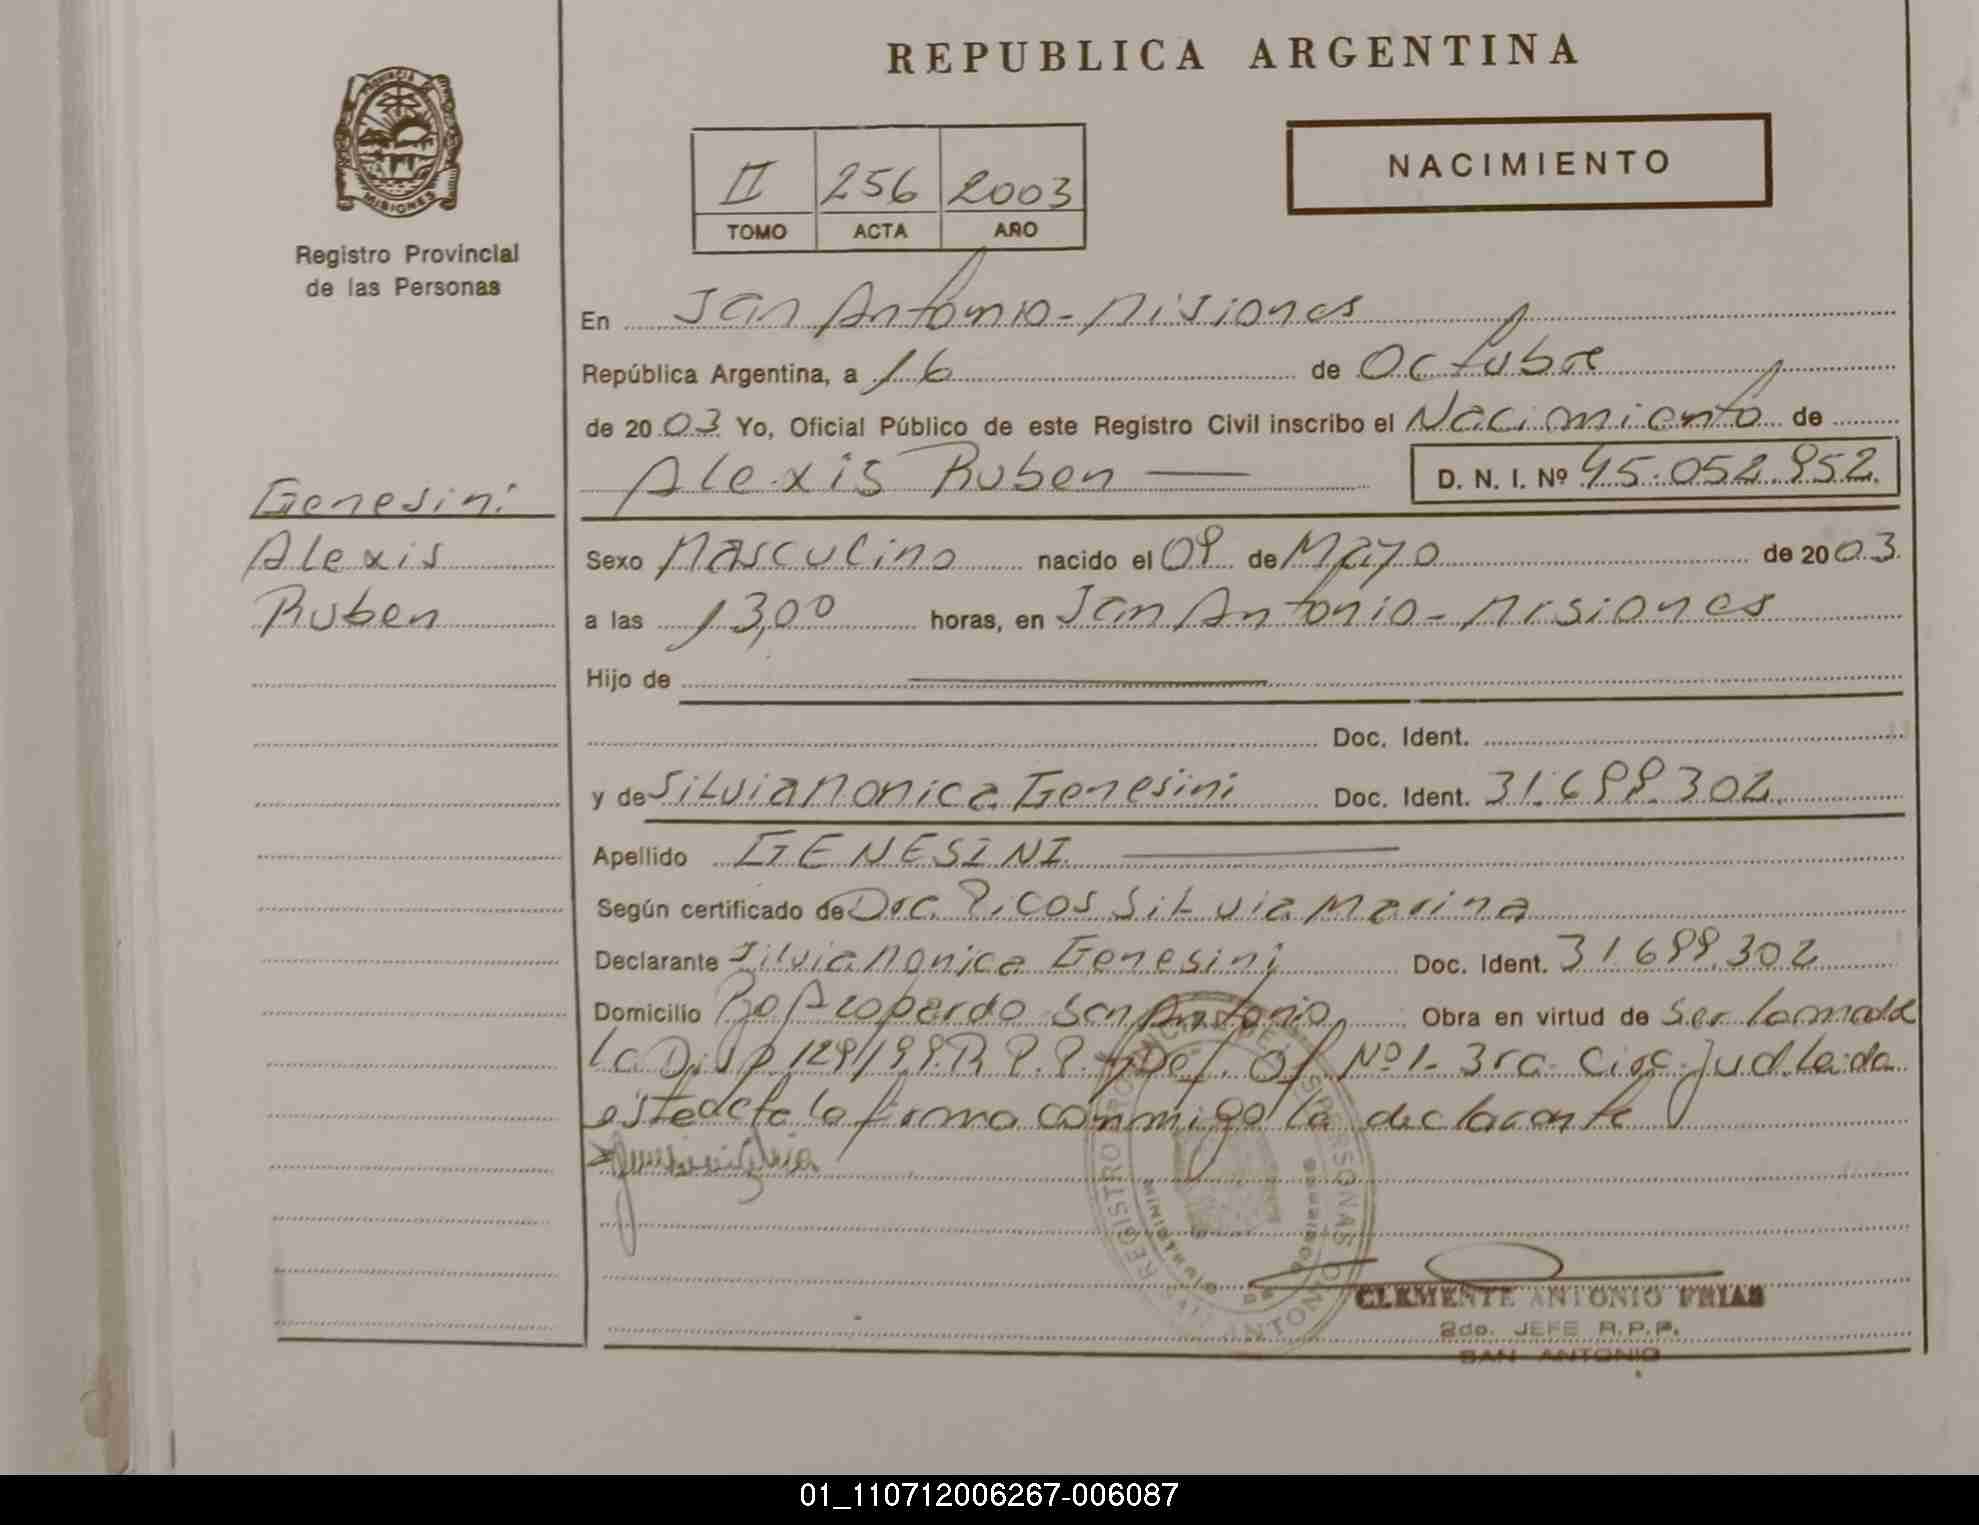 REPUBLICA ARGENTINA
PROVINCIA
MISIONES
Registro Provincial
de las Personas
II 256 2003
TOMO ACTA AÑO
NACIMIENTO
En San Antonio - Misiones
República Argentina, a 16 de Octubre
de 2003 Yo, Oficial Público de este Registro Civil inscribo el Nacimiento de
Alexis Ruben D. N. I. Nº 45.052.952
Genesini
Alexis
Ruben
Sexo Masculino nacido el 09 de Mayo de 2003
a las 13,00 horas, en San Antonio - Misiones
Hijo de
Doc. Ident.
y de Silvia Monica Genesini Doc. Ident. 31.699.302
Apellido GENESINI
Según certificado de Dra. Picos Silvia Marina
Declarante Silvia Monica Genesini Doc. Ident. 31699.302
Domicilio Bo Azopardo San Antonio Obra en virtud de ser tomada
la Disp 129/99. R.P.P. y Def. Of Nº 1- 3ra. Circ. Jud. Leida
este acta la firma conmigo la declarante
REGISTRO DE LAS PERSONAS
MINISTERIO DE GOBIERNO
SAN ANTONIO
CLEMENTE ANTONIO FRIAS
2do. JEFE R.P.P.
SAN ANTONIO
01_110712006267-006087